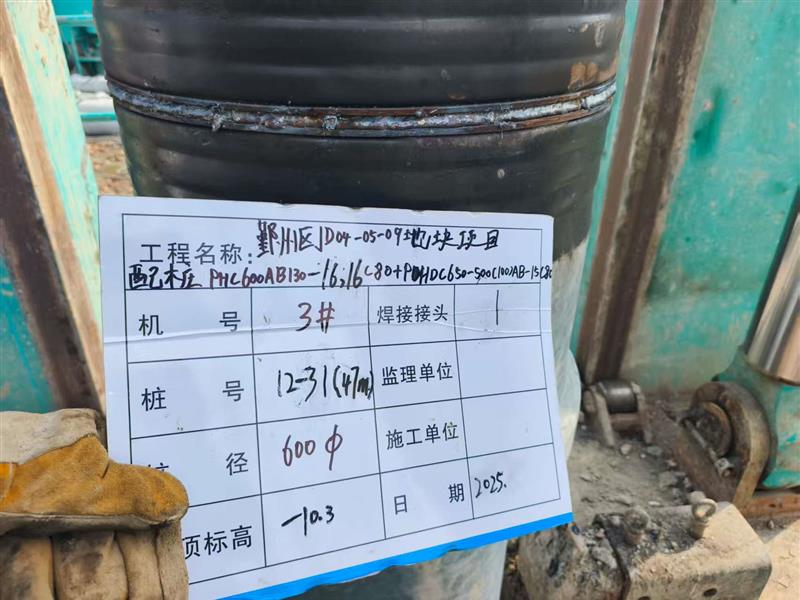 工程名称: 鄞州区JD04-05-09地块项目
配桩 PHC600AB130-16,16C80+PHDC650-500(100)AB-15C80
机 号 3# 焊接接头 1
桩 号 12-31(47m) 监理单位
径 600φ 施工单位
顶标高 -10.3 日 期 2025.